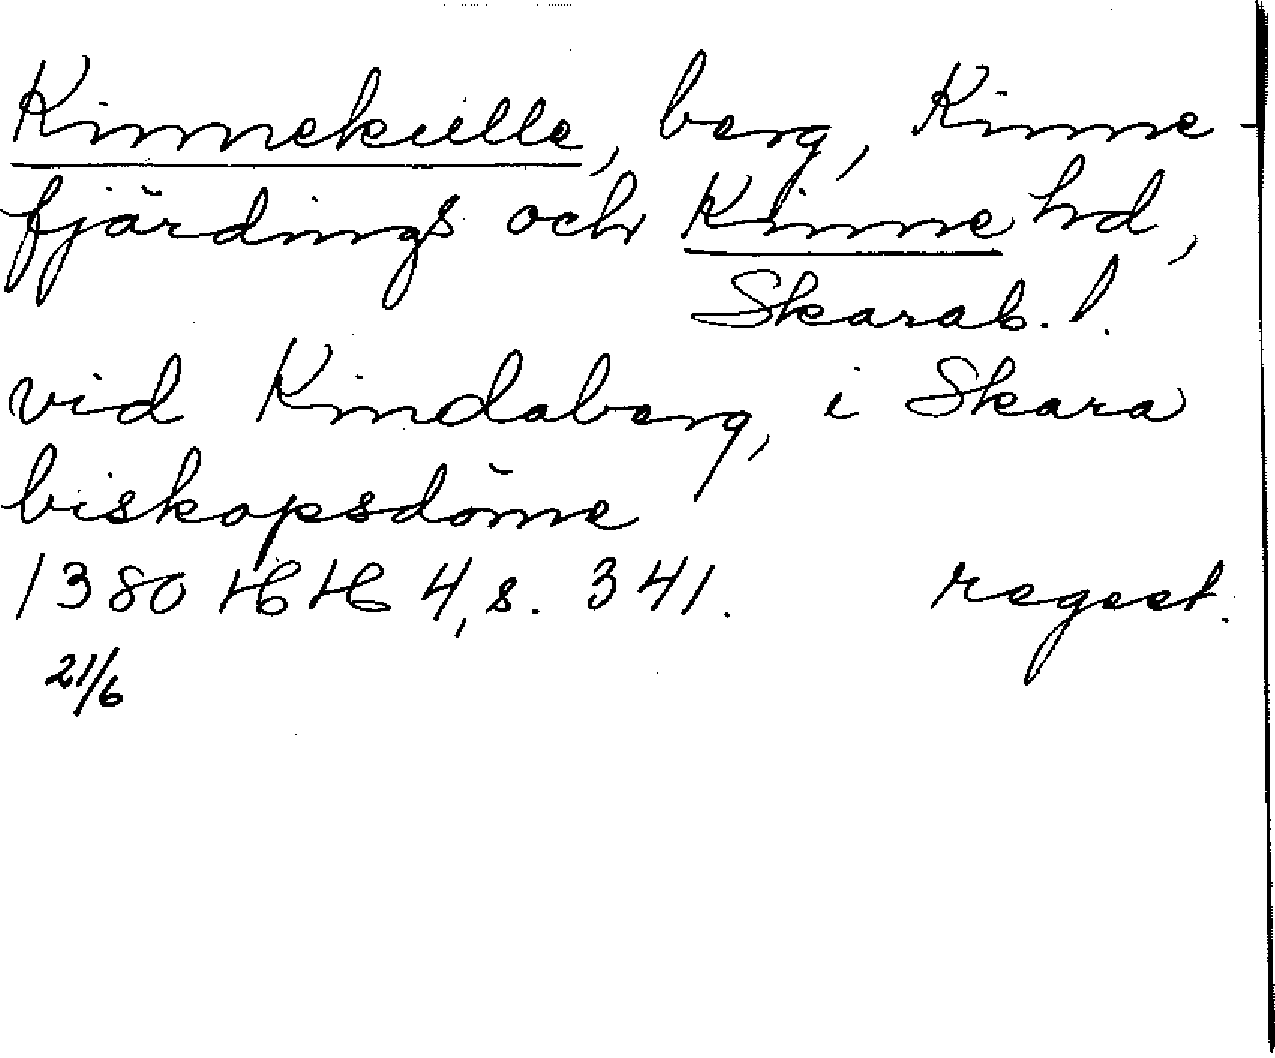 Kinnekulle, berg, Kinne-
fjärdings och Kinne hd,
Skarab. l.
vid Kindaberg, i Skara
biskopsdöme
1380 HH 4, s. 341. regest.
21/6